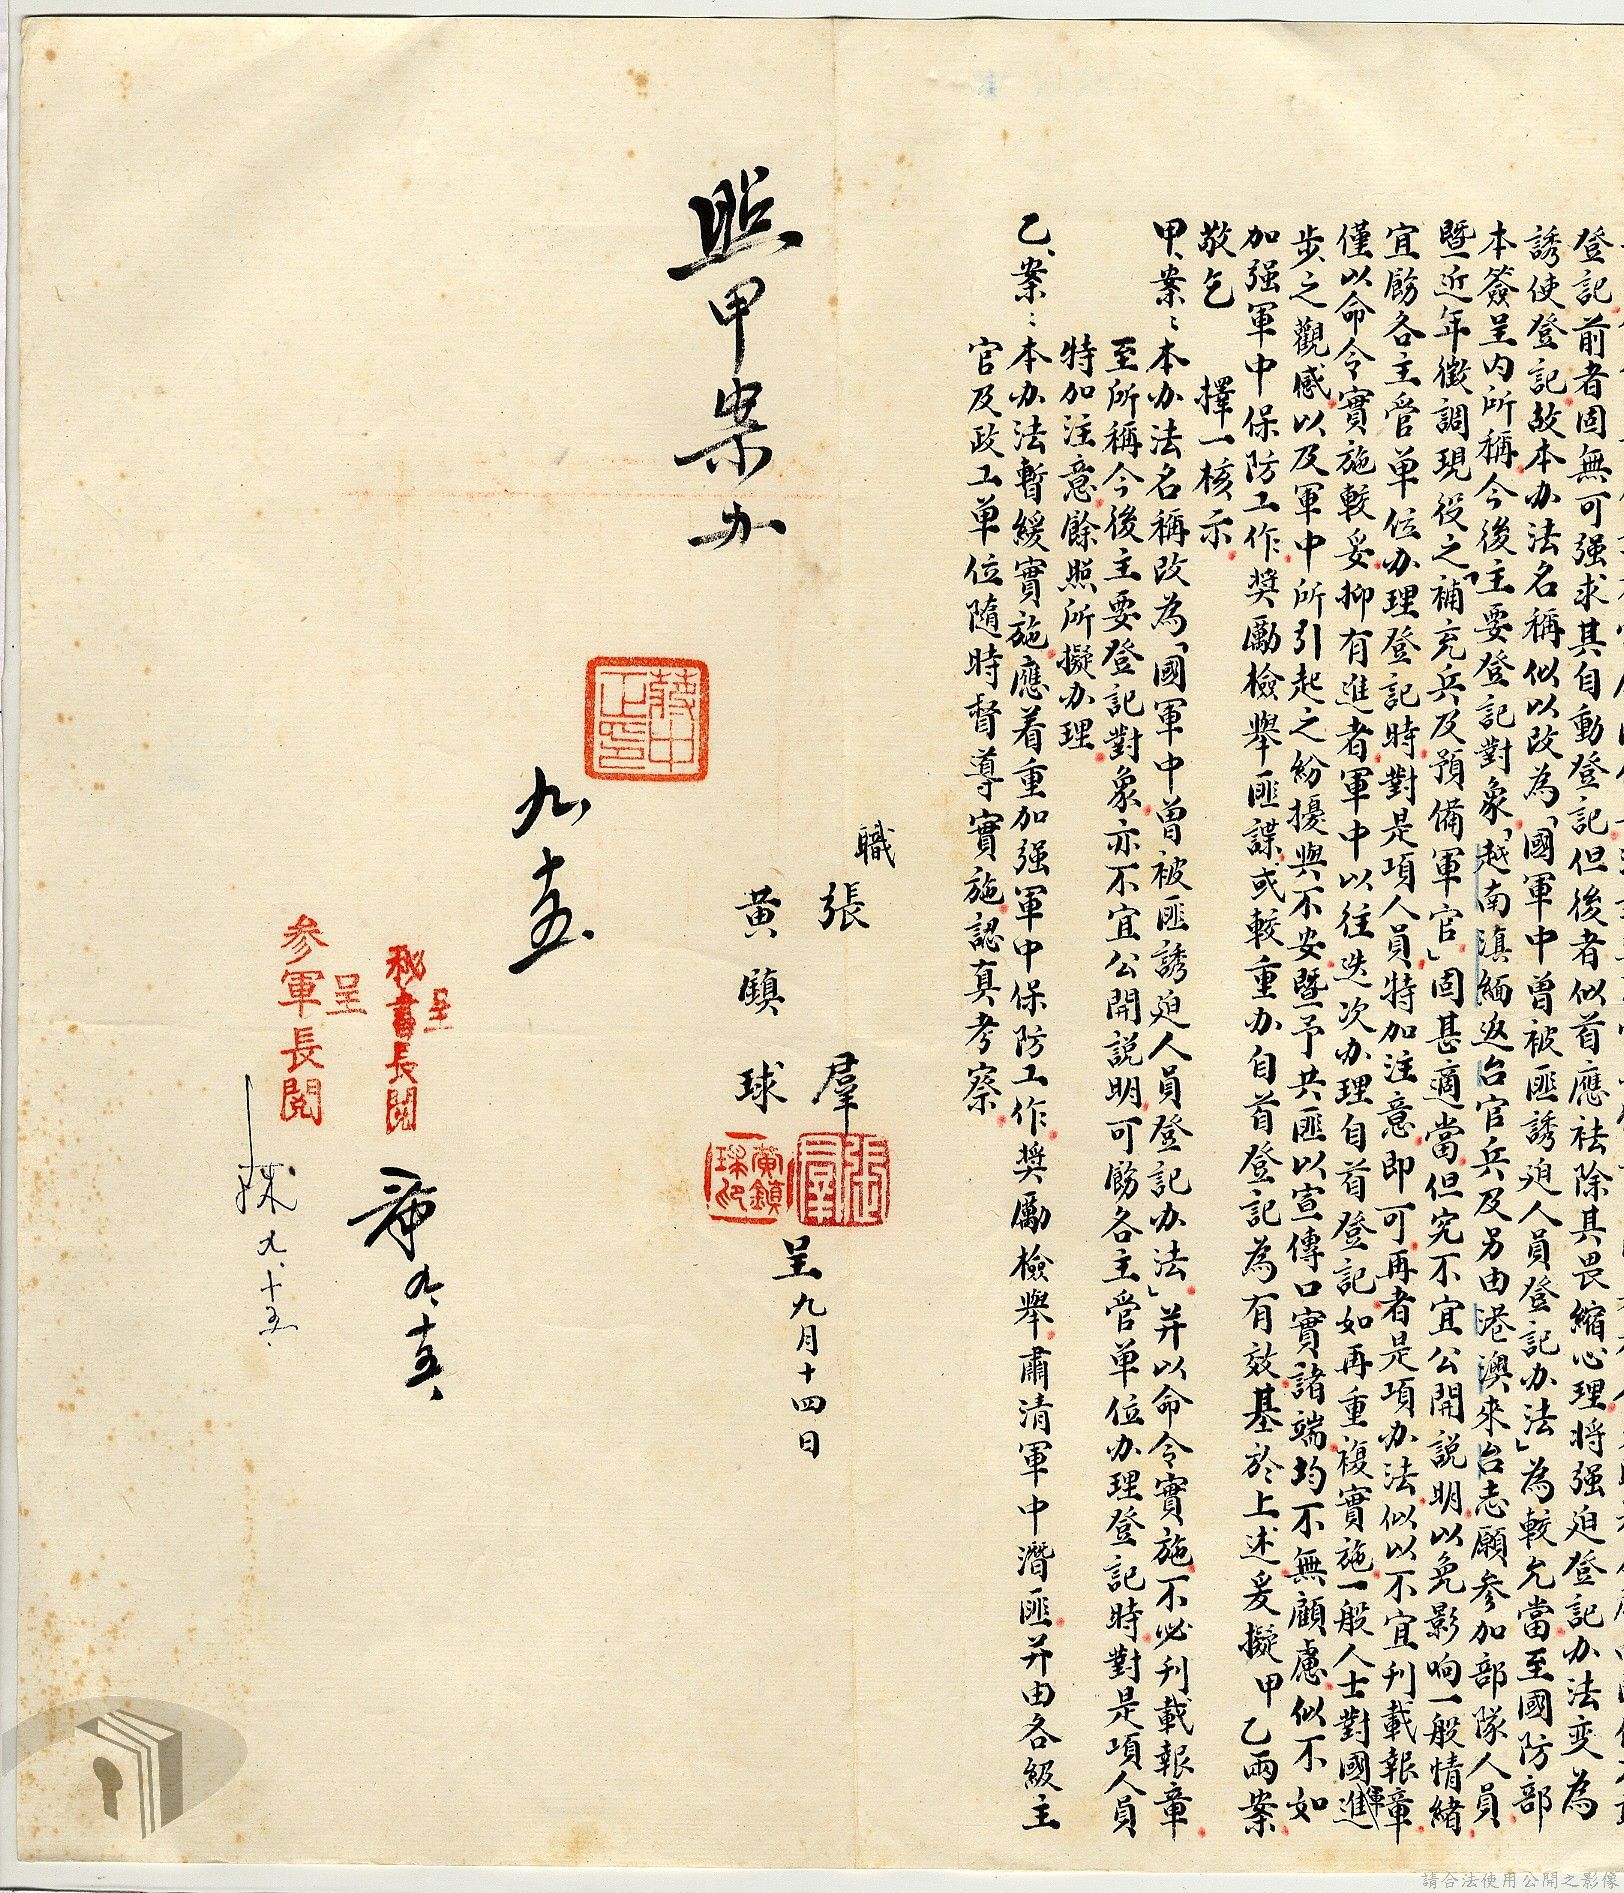 登記前者固無可强求其自動登記但後者似首應祛除其畏縮心理將强迫登記办法变為
誘使登記故本办法名稱似以改為「國軍中曾被匪誘迫人員登記办法」為較允當至國防部
本簽呈内所稱今後「主要登記對象「越南滇緬返台官兵及另由港澳來台志願參加部隊人員
暨近年徵調現役之補充兵及預備軍官」固甚適當但究不宜公開説明以免影响一般情緒
宜飭各主管单位办理登記時對是項人員特加注意即可再者是項办法似以不宜刊載報章
僅以命令實施較妥抑有進者軍中以往迭次办理自首登記如再重複實施一般人士對國軍進
步之觀感以及軍中所引起之紛擾與不安暨予共匪以宣傳口實諸端均不無顧慮似不如
加强軍中保防工作奬勵檢舉匪諜或較重办自首登記為有效基於上述爰擬甲乙兩案
敬乞
擇一核示
甲、案：本办法名稱改為「國軍中曾被匪誘迫人員登記办法」并以命令實施不必刊載報章
至所稱今後主要登記對象亦不宜公開説明可飭各主管单位办理登記時對是項人員
特加注意餘照所擬办理
乙、案：本办法暫緩實施應着重加强軍中保防工作奬勵檢舉肅清軍中潛匪并由各級主
官及政工单位隨時督導實施認真考察
職
張羣
黃鎮球
呈九月十四日
照甲案办
蔣中正印
九十五
呈
秘書長閱
九、十五、
呈
参軍長閱
球九、十五、
請合法使用公開之影像